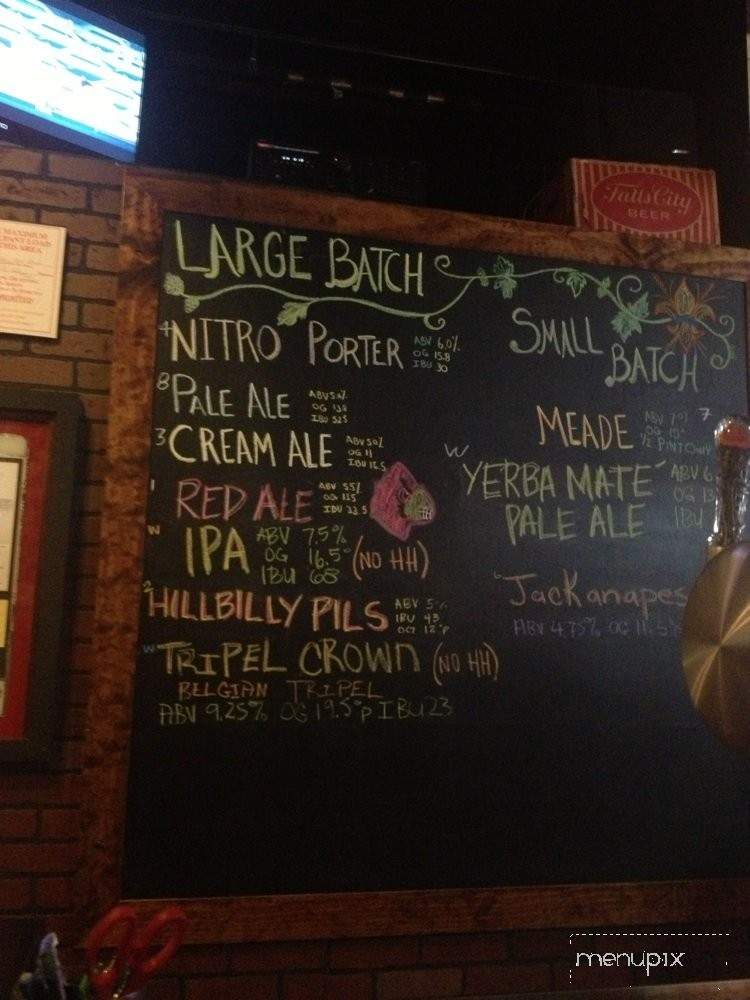 Falls City
BEER
MAXIMUM
LARGE BATCH
4 NITRO PORTER ABV 6.0%
OG 15.8
IBU 30
8 PALE ALE
3 CREAM ALE ABV 5.0%
OG 11
1 RED ALE ABV 5.5%
W IPA ABV 7.5%
OG 16.5°
IBU 68
(NO HH)
2 HILLBILLY PILS ABV 5%
IBU 43
12°P
W TRIPEL CROWN (NO HH)
BELGIAN TRIPEL
ABV 9.25% OG 19.5°P IBU 23
SMALL
BATCH
MEADE ABV 7% 7
OG 15°
1/2 PINT ONLY
W YERBA MATÉ ABV 6
PALE ALE OG 13
IBU
6 Jackanapes
ABV 4.75% OG 11.5
menupix